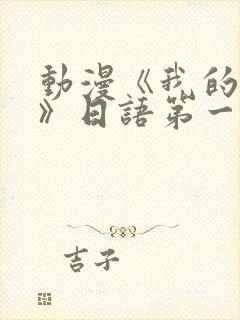 動漫《我的
》日語第一
吉子